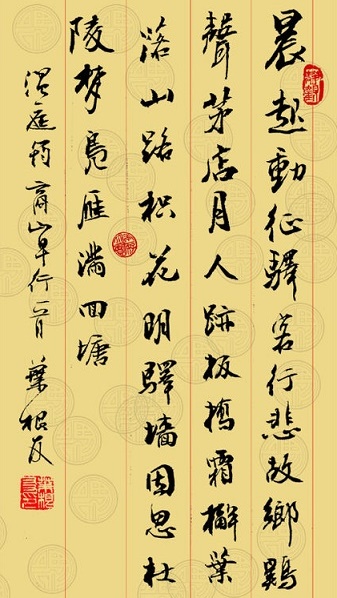 晨起動征驛客行悲故鄉鷄
聲茅店月人跡板橋霜槲葉
落山路枳花明驛墻因思杜
陵梦鳧雁滿回塘
温庭筠商山早行一首 葉根友